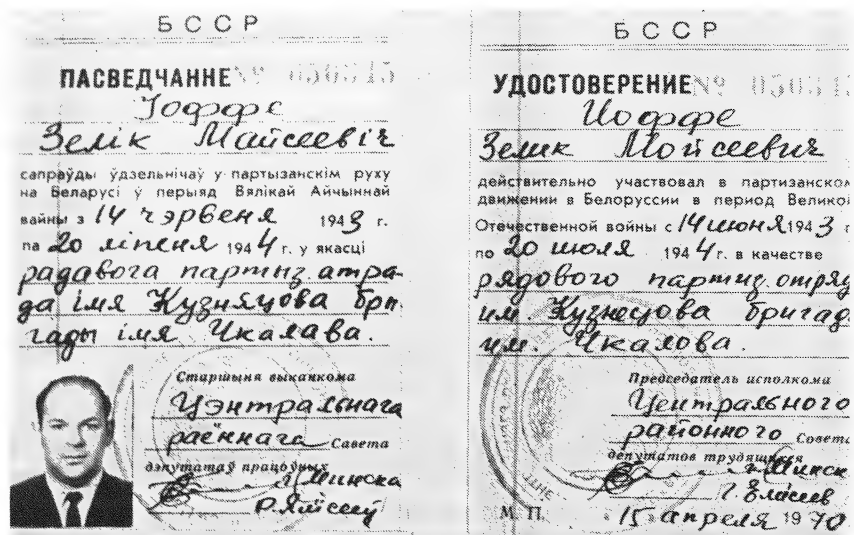 БССР
ПАСВЕДЧАННЕ № 050515
Іоффе
Зелік Майсеевіч
сапраўды ўдзельнічаў у партызанскім руху
на Беларусі ў перыяд Вялікай Айчыннай
вайны з 14 чэрвеня 1943 г.
па 20 ліпеня 1944 г. у якасці
радавога партыз. атра-
да імя Кузняцова бры-
гады імя Чкалава.
Старшыня выканкома
Цэнтральнага
раённага Савета
дэпутатаў працоўных
г. Мінска
БССР
УДОСТОВЕРЕНИЕ №
Иоффе
Зелик Мойсеевич
действительно участвовал в партизанском
движении в Белоруссии в период Великой
Отечественной войны с 14 июня 1943 г
по 20 июля 1944 г. в качестве
рядового партиз. отряд
им. Кузнецова бригад
им. Чкалова.
Председатель исполкома
Центрального
районного Совета
депутатов трудящихся
г. Минск
М. П.
15 апреля 1970